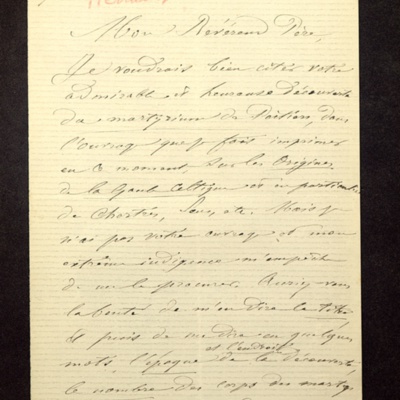 Mon Révérend Père,
Je voudrais bien citer votre
admirable et heureuse découverte
du martyrium de Poitiers, dans
l'ouvrage que je fait imprimer
en ce moment, sur les Origines
de la Gaule Celtique et en particulier
de Chartres, Sens, etc. Mais je
n'ai pas votre ouvrage et mon
extrême indigence m'empêche
de me le procurer. Auriez vous
la bonté de m'en dire le titre
et puis de me dire en quelques
mots, l'époque et l'endroit de la découverte,
le nombre des corps des martyrs